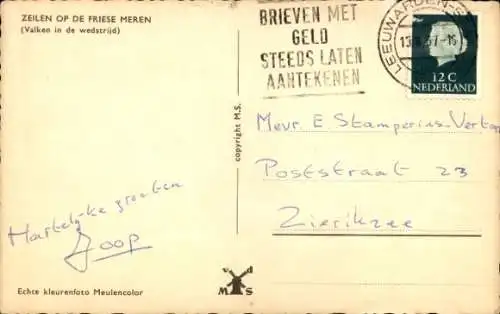 ZEILEN OP DE FRIESE MEREN
(Valken in de wedstrijd)
BRIEVEN MET
GELD
STEEDS LATEN
AANTEKENEN
LEEUWARDEN-S
12 C
NEDERLAND
copyright M.S.
Mevr. E Stamperius-Verton
Poststraat 23
Zierikzee
Hartelijke groeten
Joop
M S
Echte kleurenfoto Meulencolor